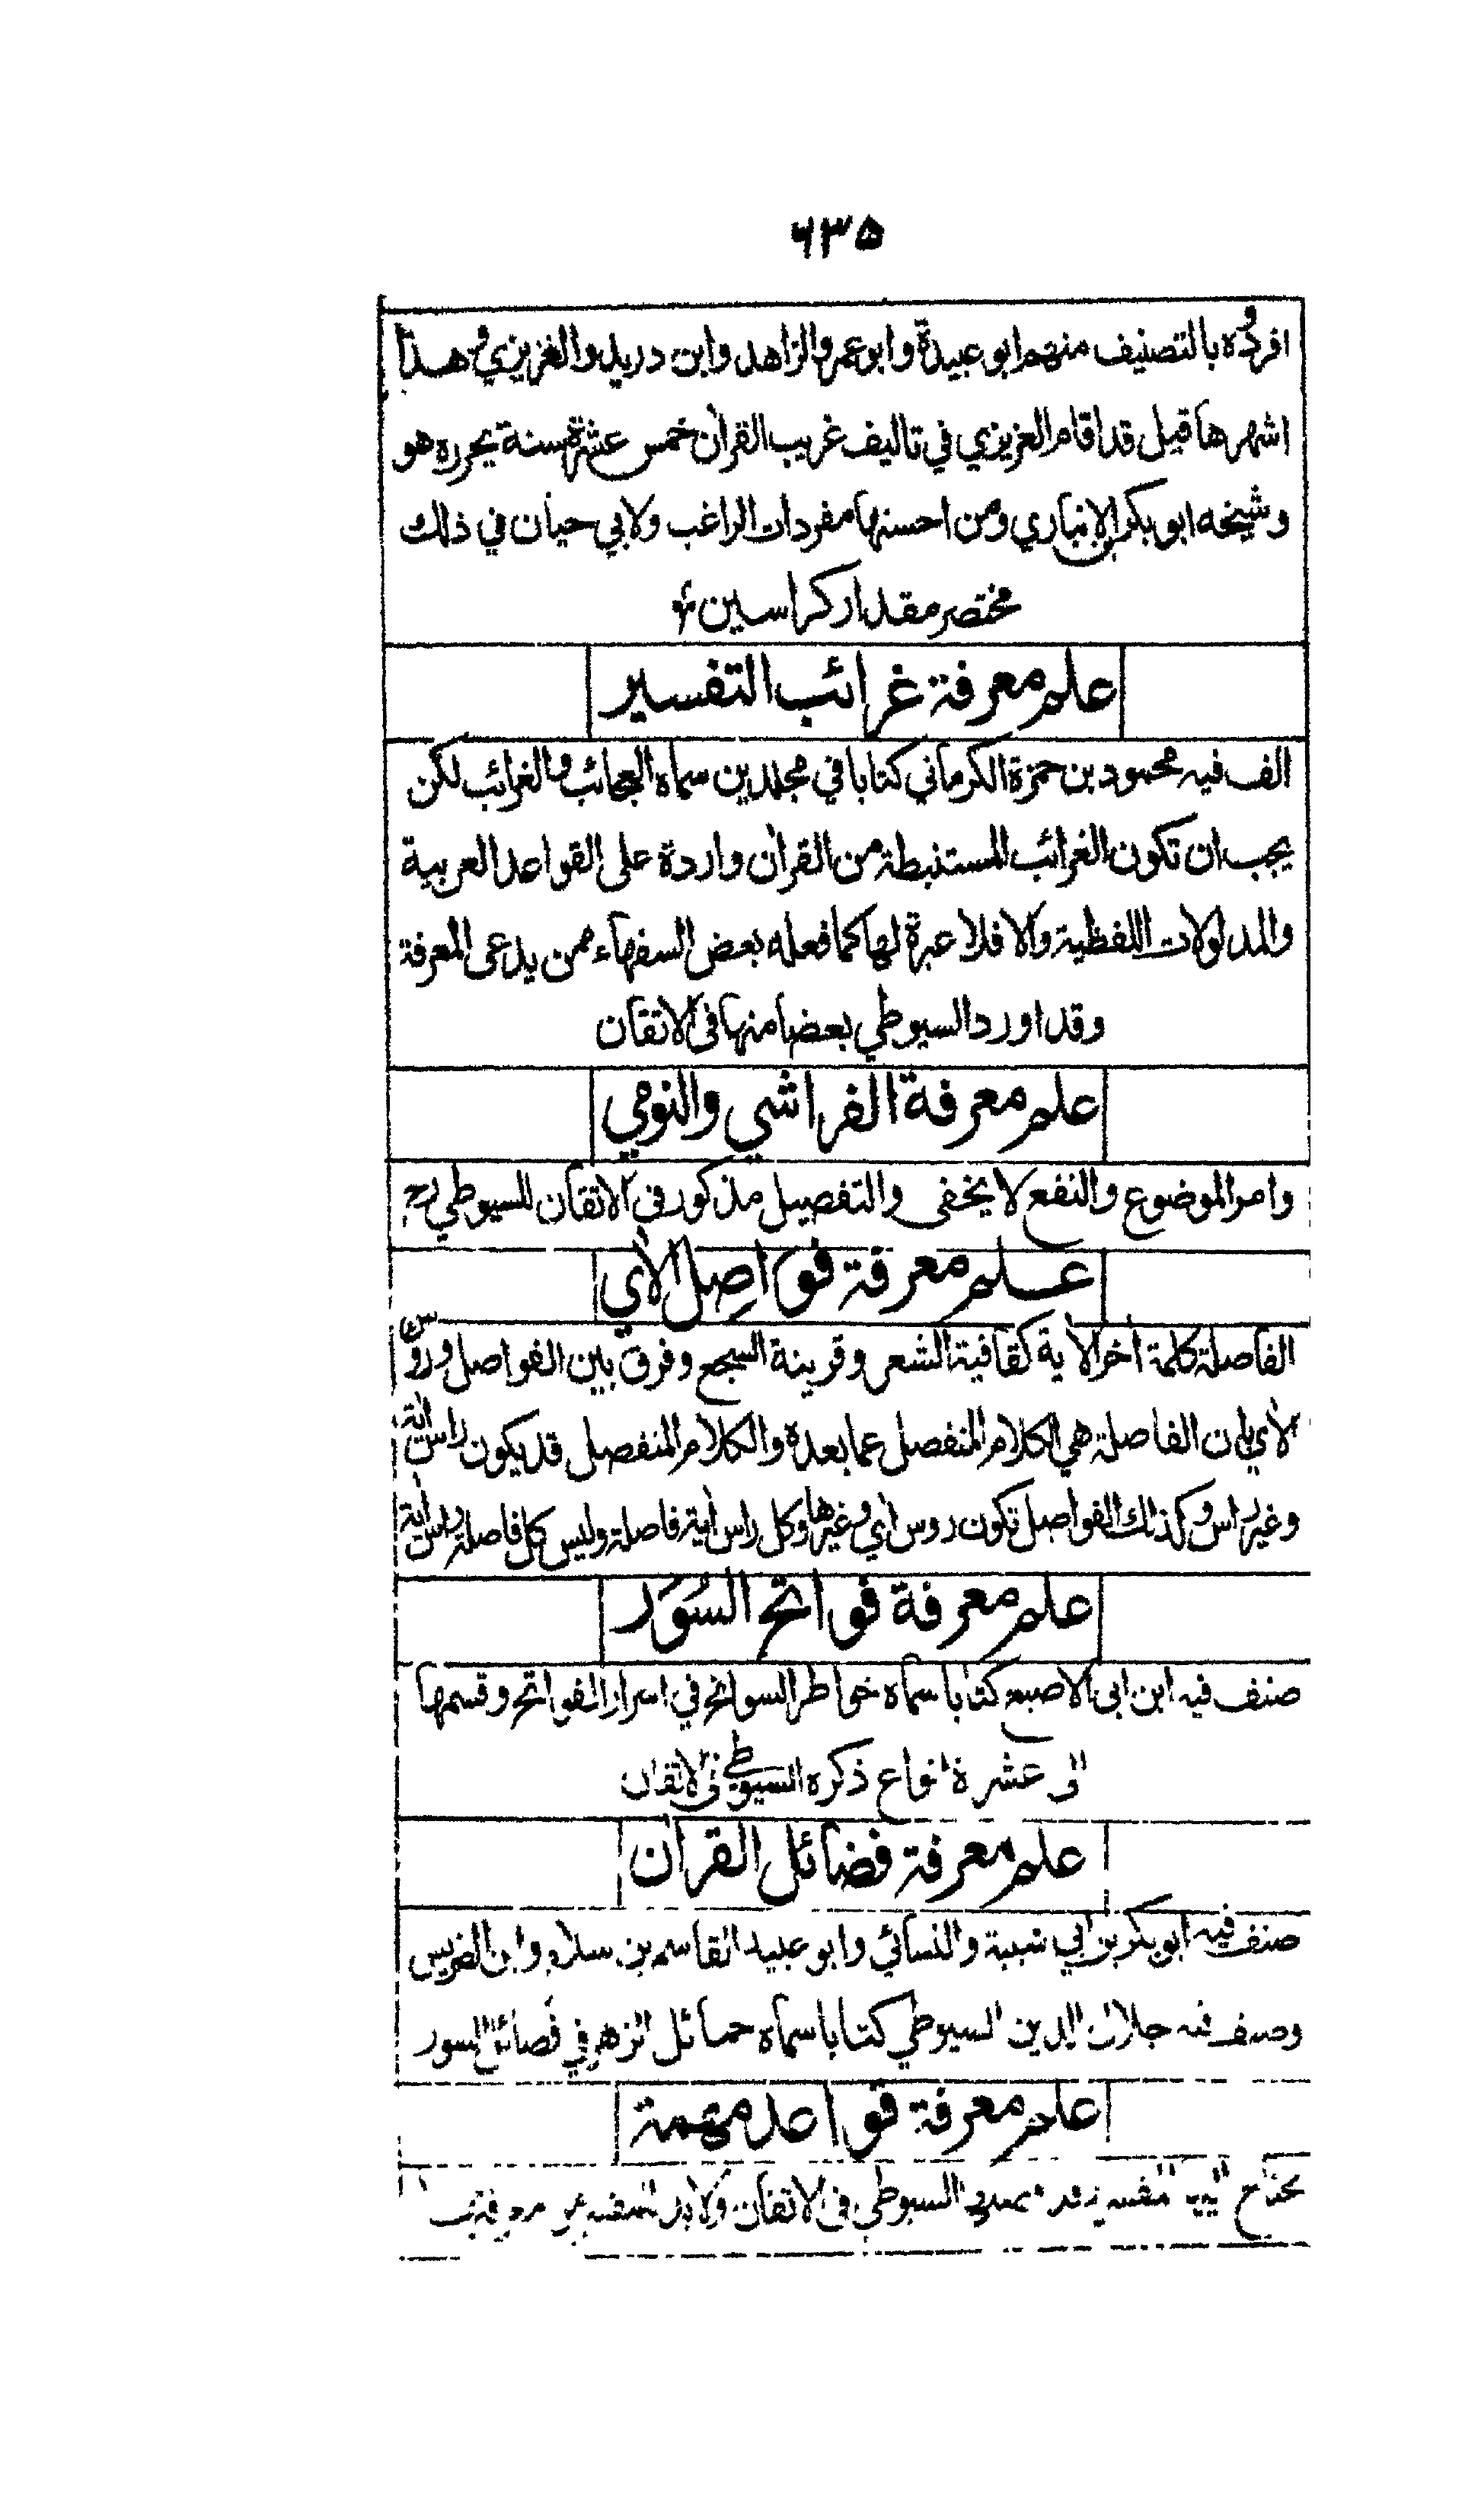 ٦٣٥
افردوه بالتصنيف منهم ابو عبيدة وابو عمر والزاهد وابن دريد والغزيزي وهذا
اشهرها قيل قد اقام العزيزي في تاليف غريب القران خمس عشرة سنة يحرره هو
وشيخه ابو بكر بن الانباري ومن احسنها مفردات الراغب ولابي حيان في ذلك
مختصر مقدار كراسين
علم معرفة غرائب التفسير
الف فيه محمود بن حمزة الكرماني كتابا في مجلدين سماه العجائب والغرائب لكن
يجب ان تكون الغرائب المستنبطة من القران واردة على القواعد العربية
والمدلولات اللفظية والا فلا عبرة لها كما فعله بعض السفهاء ممن يدعى المعرفة
وقد اورد السيوطي بعضا منها في الاتقان
علم معرفة الفراشي والنومي
وامر الموضوع والنفع لا يخفى والتفصيل مذكور في الاتقان للسيوطي رح
علم معرفة فواصل الأي
الفاصلة كلمة أخر الأية كقافية الشعر وقرينة السجع وفرق بين الفواصل وروس
الأي بان الفاصلة هي الكلام المنفصل عما بعده والكلام المنفصل قد يكون راس أية
وغير راس وكذلك الفواصل تكون روس أي وغيرها وكل راس أية فاصلة وليس كل فاصلة راس أية
علم معرفة فواتح السُوَر
صنف فيه ابن ابي الاصبع كتابا سماه خواطر السوانح في اسرار الفواتح وقسمها
الى عشرة انواع ذكره السيوطي في الاتقان
علم معرفة فضائل القران
صنف فيه ابو بكر بن ابي شيبة والنسائي وابو عبيد القاسم بن سلام وابن الضريس
وصنف فيه جلال الدين السيوطي كتابا سماه حمائل الزهر في فضائل السور
علم معرفة قواعد مهمة
يحتاج اليها المفسر السيوطي في الاتقان ولابد للمفسر من معرفتها